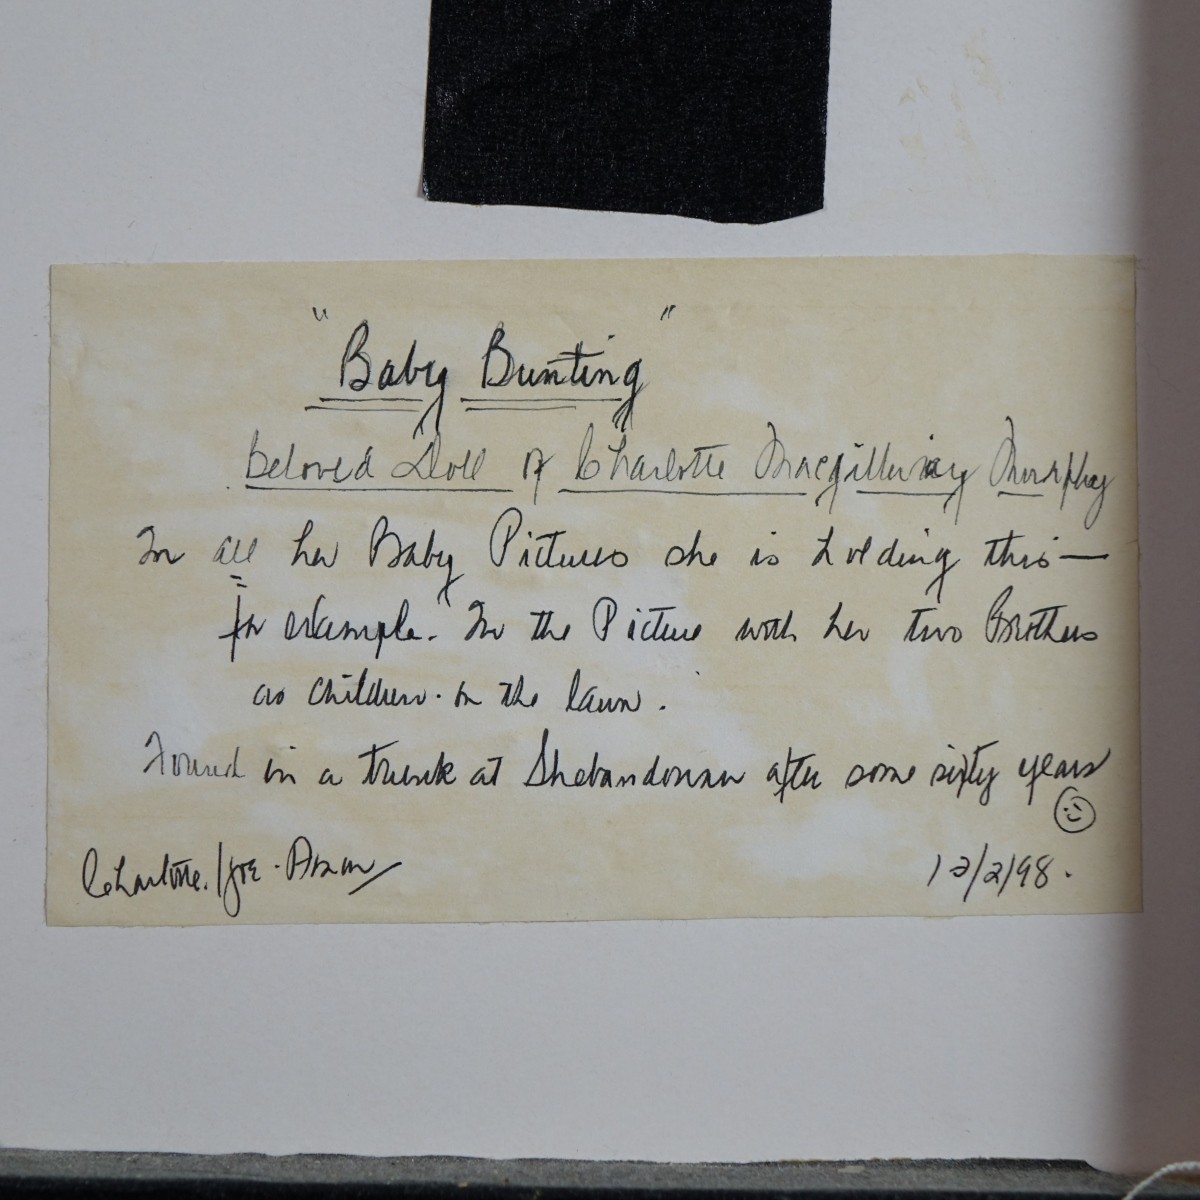 "Baby Bunting"
Beloved Doll of Charlotte Macgillivray Murphy
In all her Baby Pictures she is holding this—
for example. In the Picture with her two Brothers
as children. on the lawn.
Found in a trunk at Shebandowan after some sixty years
Charlotte.
12/2/98.